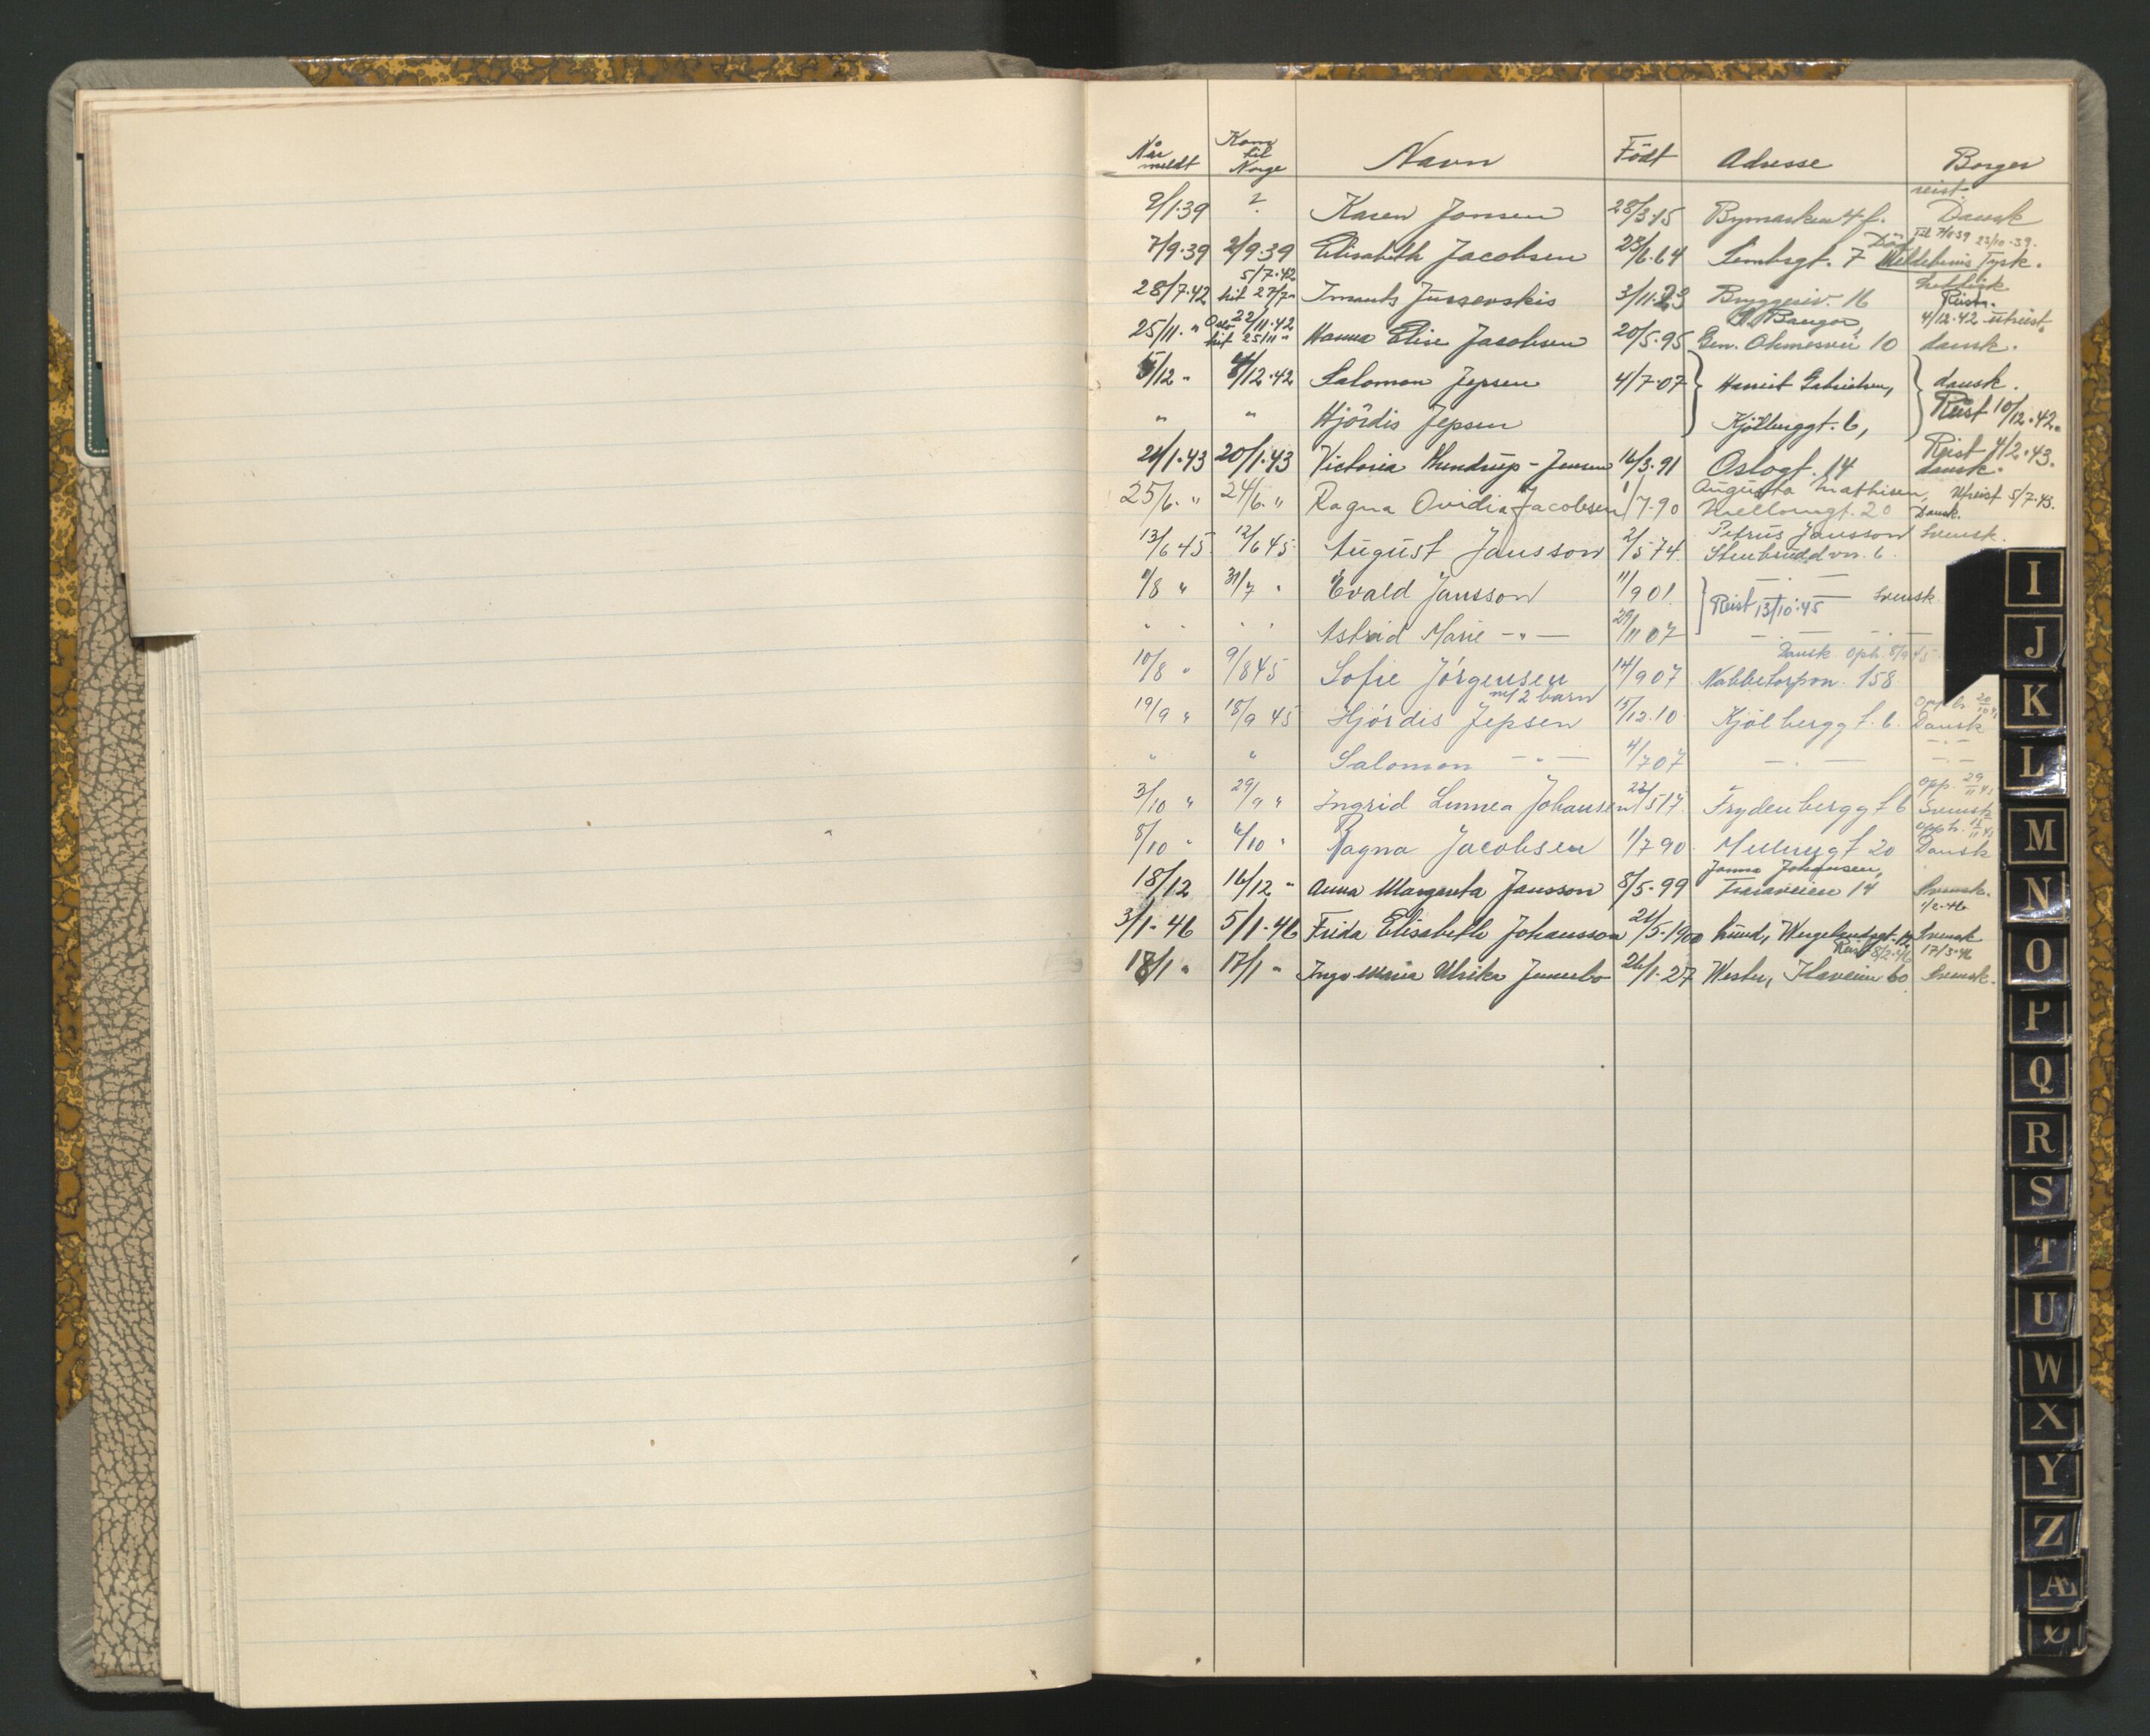 Når meldt Kom til Norge Navn Født Adresse Borger
reist
9/1.39 ? Karen Jonsen 28/3.15 Bymarken 4 f. Dansk
Død Til 7/11 39 23/10-39.
7/9.39 2/9.39 Elisabeth Jacobsen 23/6.64 Lembsgt. 7 Tysk.
5/7.42
28/7.42 hit 27/7 " Imants Jurssevskis 3/11.23 Bryggeriv. 16 Reist.
Oslo 22/11.42 Bangor, 4/12.42 utreist
25/11. " hit 25/11 " Hanna Elise Jacobsen 20/5.95 Gen. Ohmesvei 10 dansk.
5/12 " 4/12.42 Salomon Jepsen 4/7.07 Gabrielsen, dansk.
" " Hjördis Jepsen Kjölberggt. 6, Reist 10/12.42.
Reist 4/2.43.
21/1.43 20/1.43 Victoria Jensen 16/3.91 Oslogt. 14 dansk.
Augusta Mathisen, Utreist 5/7.43.
25/6. " 24/6. " Ragna Ovidia Jacobsen 1/7.90 Mellomgt. 20 Dansk.
Petrus Jansson Svensk.
13/6 45 12/6 45 August Jansson 2/5 74 Stenbruddvn. 6.
1/8 " 31/7 " Evald Jansson 11/9 01. Reist 13/10.45 — " — Svensk
" " " " Astrid Marie — " — 29/11 07 — . — — . —
Dansk Oph. 8/9 45
10/8 " 9/8 45 Sofie Jörgensen 14/9 07 Nabbetorpvn. 158
m/2 barn Opph. 20/10 45
19/9 " 18/9 45 Hjördis Jepsen 15/12.10. Kjölberggt. 6. Dansk
" " Salomon — " — 4/7 07 — . — — " —
Opp. 29/11 45
3/10 " 29/9 " Ingrid Linnea Johansen 22/5 17. Frydenberggt 6 Svensk
Opph. 13/11 45
8/10 " 6/10 " Ragna Jacobsen 1/7 90. Mellomgt 20 Dansk
Johansen,
18/12 16/12 " Anna Margreta Jansson 8/5.99 Traraveien 14 Svensk.
1/2-46
3/1-46 5/1-46 Frida Elisabeth Johansson 21/5.1900 Lund, Wergelandsgt. 12 Svensk
Reist 8/2-46 17/3-46
18/1 " 17/1 " Inga Maria Ulrika 26/1.27 Haveien 60 Svensk.
I
J
K
L
M
N
O
P
Q
R
S
T
U
W
X
Y
Z
Æ
Ø